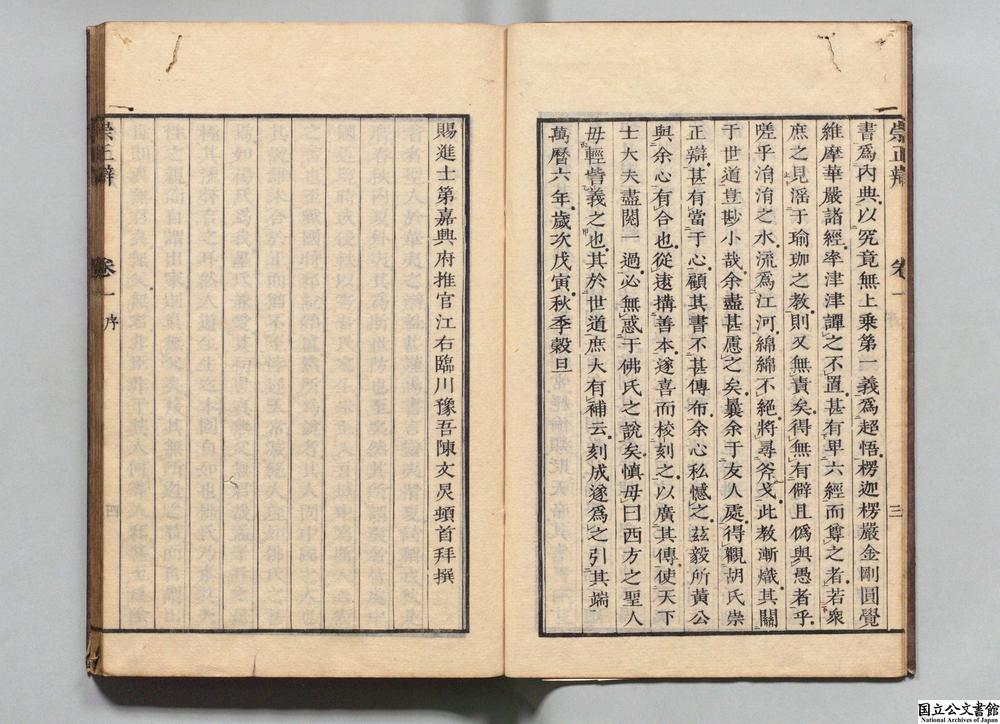 崇正辯 卷一 序 三
書爲內典以究竟無上乘第一義爲超悟楞迦楞嚴金剛圓覺
維摩華嚴諸經率津津譚之不置甚有卑六經而尊之者若衆
庶之見滛于瑜珈之教則又無責矣得無有僻且僞與愚者乎
嗟乎㳙㳙之水流爲江河綿綿不絕將尋斧戈此教漸熾其關
于世道豈尠小哉余盡甚慮之矣曩余于友人處得觀胡氏崇
正辯甚有當于心顧其書不甚傳布余心私憾之茲毅所黃公
與余心有合也從遠搆善本遂喜而校刻之以廣其傳使天下
士大夫盡閱一過必無惑于佛氏之說矣慎毋曰西方之聖人
毋輕訾義之也其於世道庶大有補云刻成遂爲之引其端
萬曆六年歲次戊寅秋季穀旦
賜進士第嘉興府推官江右臨川豫吾陳文炅頓首拜撰
崇正辯 卷一 序 四
国立公文書館
National Archives of Japan